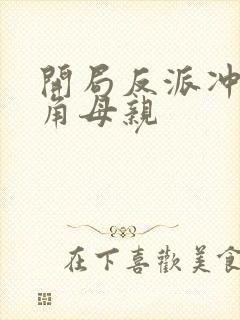 開局反派冲
角母親
在下喜歡美食